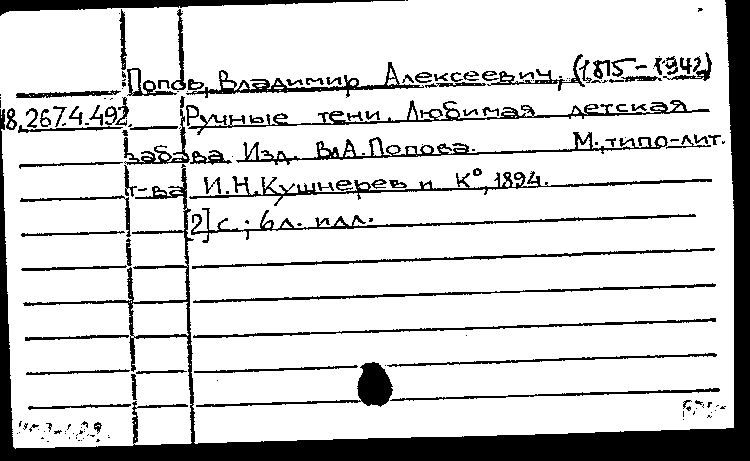 Попов, Владимир Алексеевич, (1875-1942)
18.267.4.492 Ручные тени. Любимая детская
забава. Изд. Вл.А.Попова. М., типо-лит.
т-ва И.Н.Кушнерев и К°, 1894.
[2] с.; 6 л. илл.